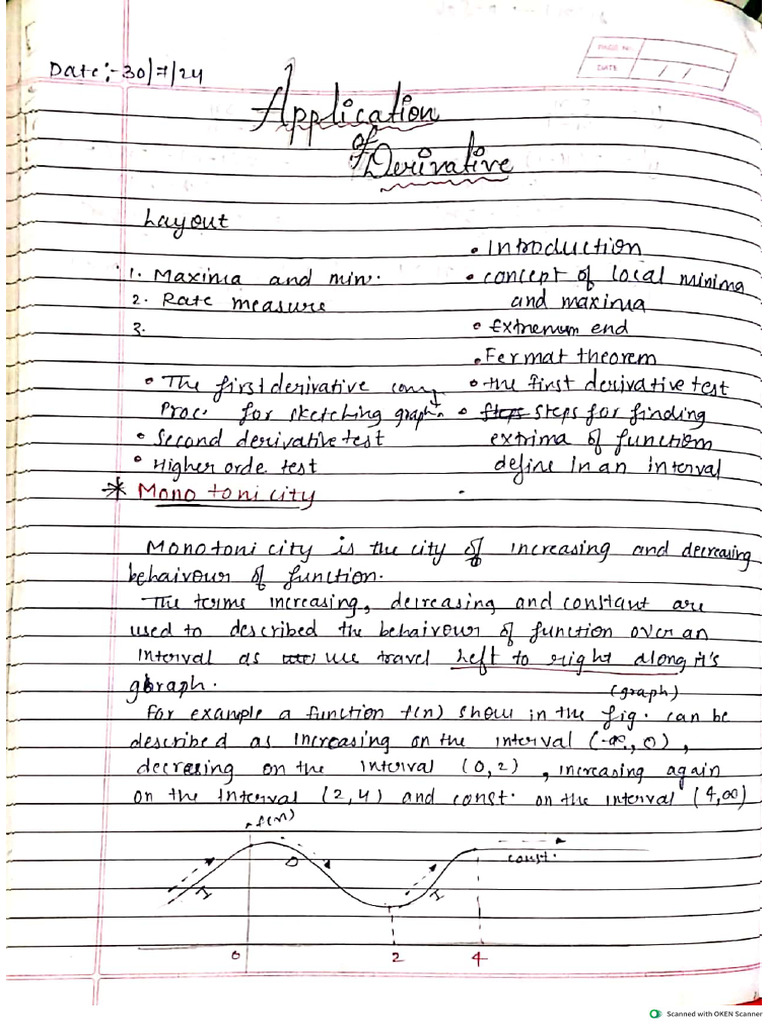 PAGE NO.
DATE / /
Date:- 30/7/24
Application
of
Derivative
Layout
• Introduction
1. Maxima and min.
• concept of local minima
2. Rate measure
and maxima
3.
• Extremum end
• Fermat theorem
• The first derivative
• the first derivative test
Proc. for sketching graph.
• steps for finding
• Second derivative test
extrima of function
• Higher orde test
define in an interval
* Monotonicity
Monotonicity is the city of increasing and decreasing
behaivour of function.
The terms increasing, decreasing and constant are
used to described the behaivour of function over an
interval as we travel left to right along it's
graph.
(graph)
for example a function f(n) show in the fig. can be
described as increasing on the interval (-∞, 0),
decreasing on the interval (0,2), increasing again
on the interval (2,4) and const. on the interval (4,∞)
f(n)
I D I const.
0 2 4
Scanned with OKEN Scanner